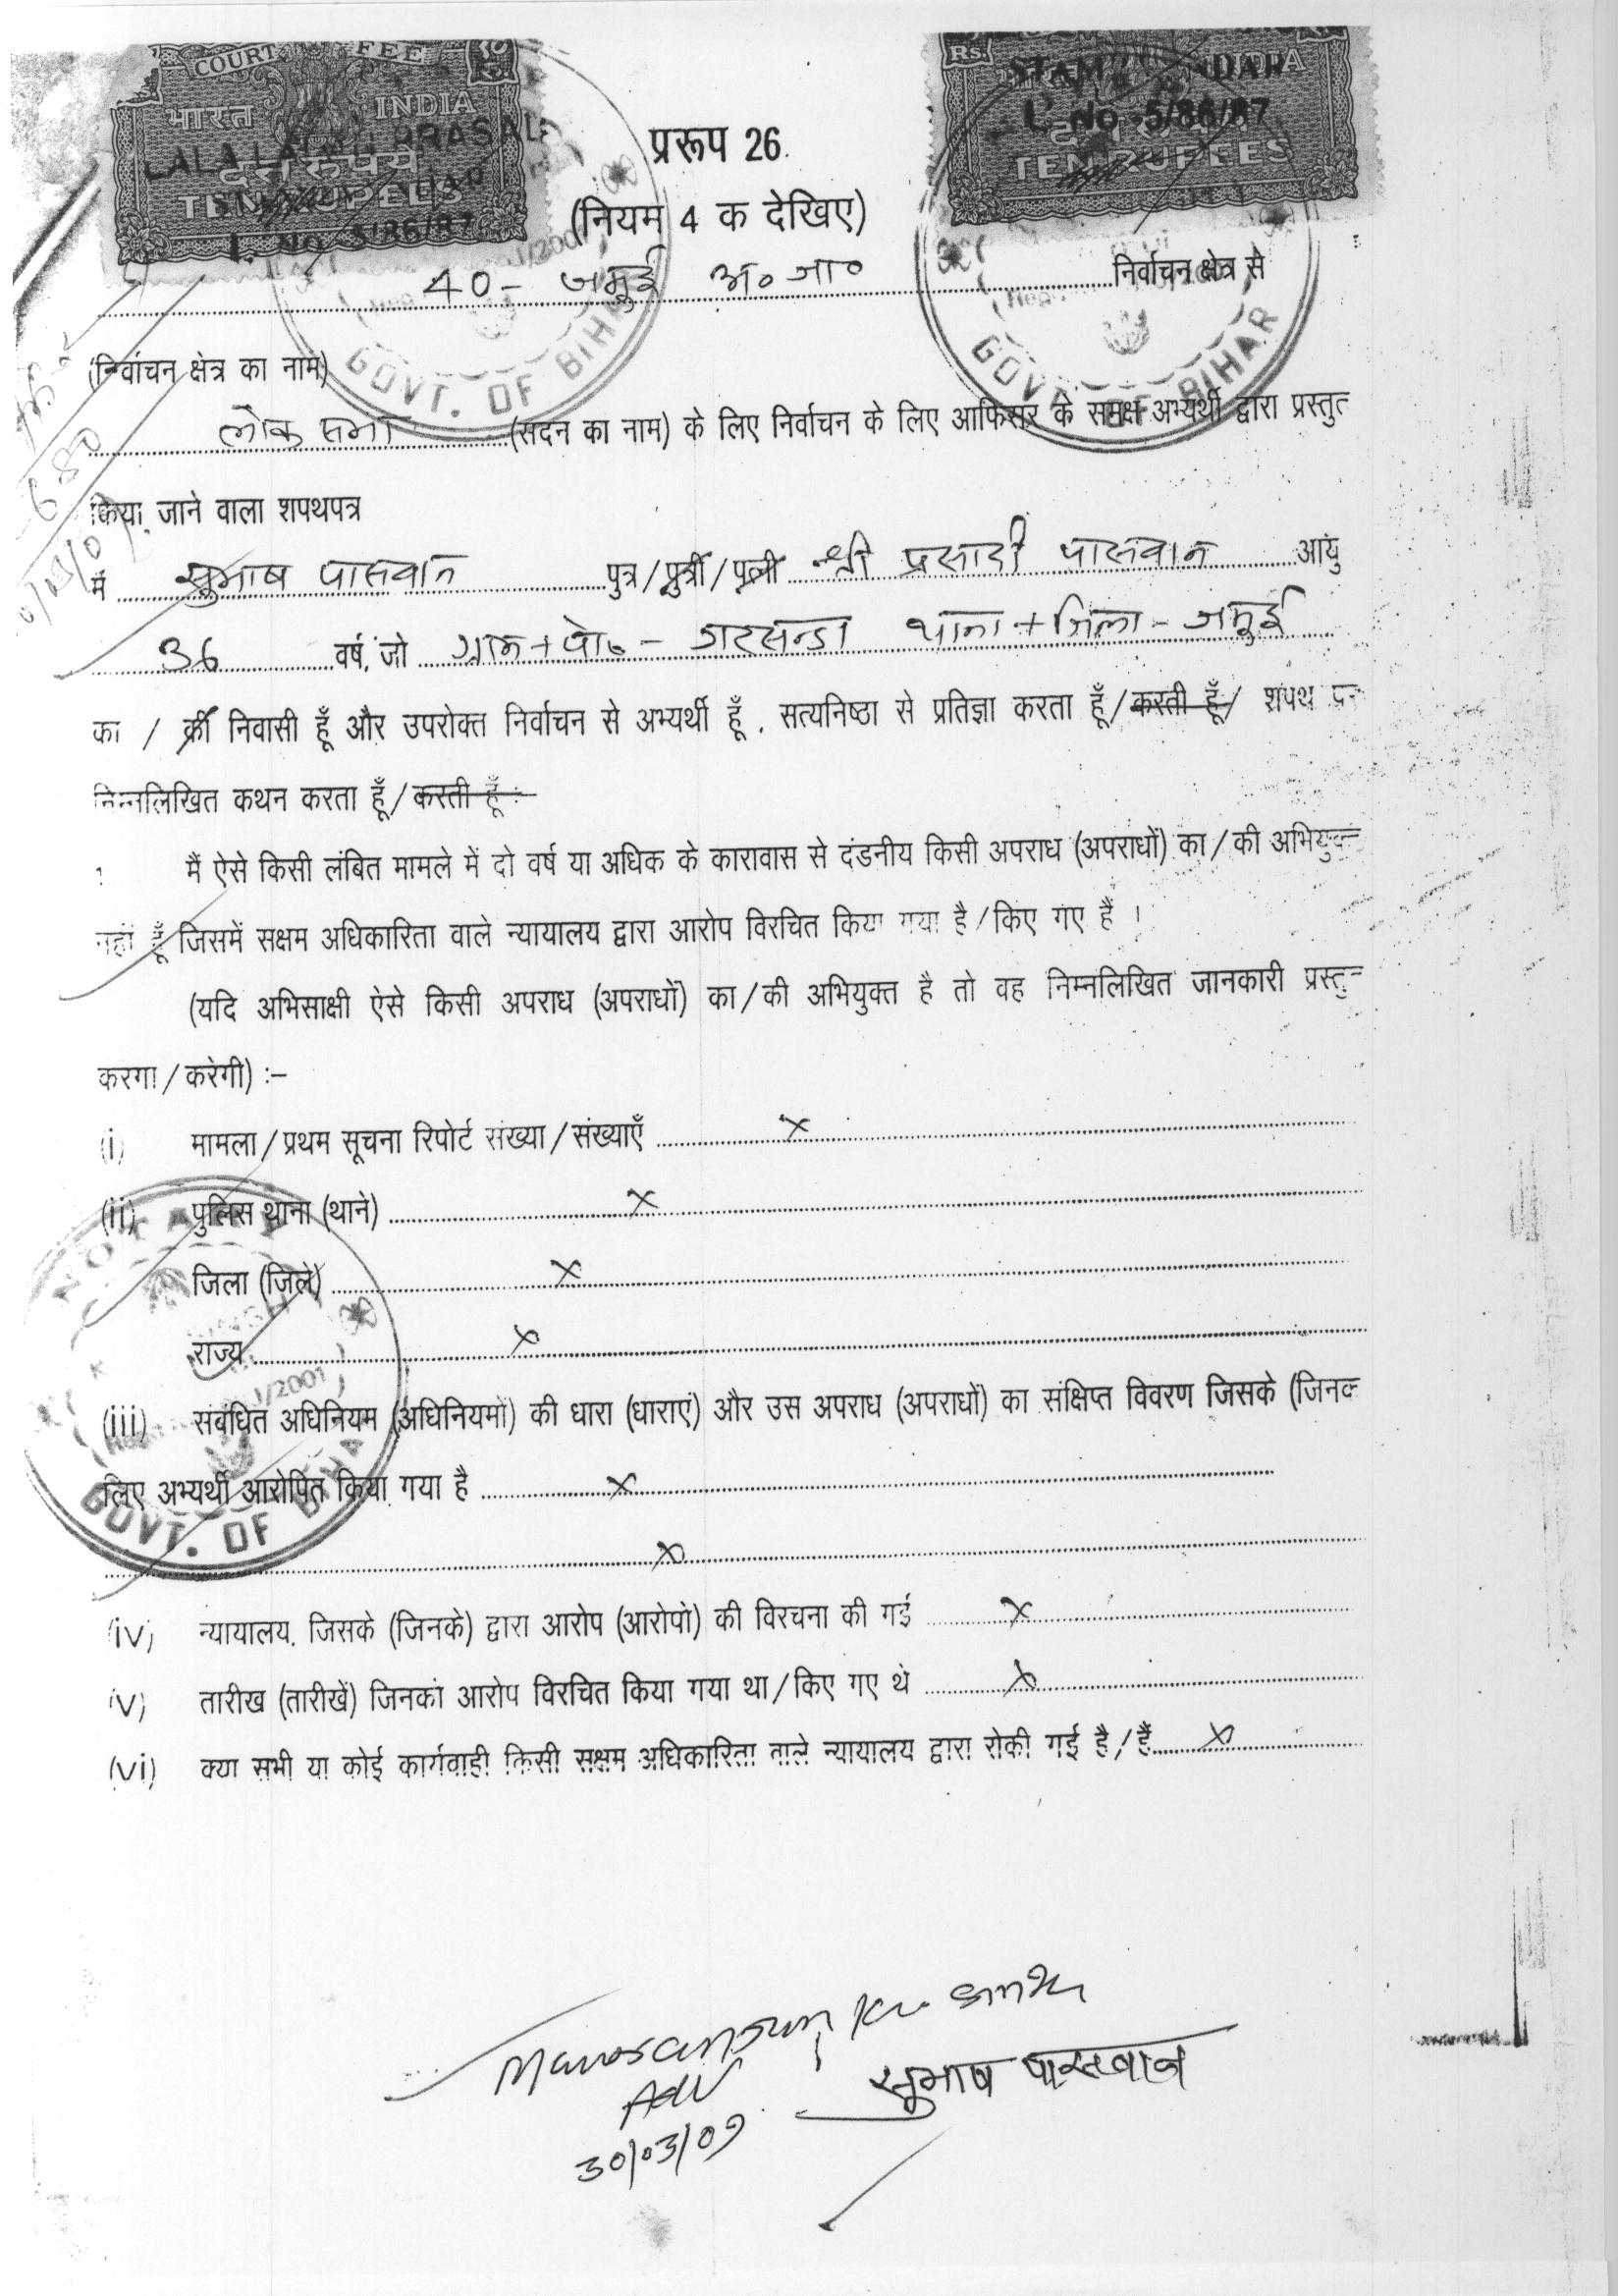 COURT FEE
भारत INDIA
दस रुपये
TEN RUPEES
L. No 5/86/87
Rs.
INDIA
C. No -5/86/87
TEN RUPEES
प्ररूप 26.
(नियम 4 क देखिए)
40- जमुई अ० जा० निर्वाचन क्षेत्र से
GOVT. OF BIHAR
GOVT. OF BIHAR
(निर्वाचन क्षेत्र का नाम)
लोक सभा (सदन का नाम) के लिए निर्वाचन के लिए आफिसर के समक्ष अभ्यर्थी द्वारा प्रस्तुत
680
किया जाने वाला शपथपत्र
मैं सुभाष पासवान पुत्र/पुत्री/पत्नी श्री प्रसादी पासवान आयु
36 वर्ष, जो ग्राम+पो०- गरसन्डा थाना+जिला- जमुई
का / की निवासी हूँ और उपरोक्त निर्वाचन से अभ्यर्थी हूँ, सत्यनिष्ठा से प्रतिज्ञा करता हूँ/करती हूँ/ शपथ पर
निम्नलिखित कथन करता हूँ/करती हूँ :-
1 मैं ऐसे किसी लंबित मामले में दो वर्ष या अधिक के कारावास से दंडनीय किसी अपराध (अपराधों) का/की अभियुक्त
नहीं हूँ जिसमें सक्षम अधिकारिता वाले न्यायालय द्वारा आरोप विरचित किया गया है/किए गए हैं ।
(यदि अभिसाक्षी ऐसे किसी अपराध (अपराधों) का/की अभियुक्त है तो वह निम्नलिखित जानकारी प्रस्तुत
करेगा/करेगी) :-
(i) मामला/प्रथम सूचना रिपोर्ट संख्या/संख्याएँ x
(ii) पुलिस थाना (थाने) x
जिला (जिले) x
राज्य x
(iii) संबंधित अधिनियम (अधिनियमों) की धारा (धाराएं) और उस अपराध (अपराधों) का संक्षिप्त विवरण जिसके (जिनक
लिए अभ्यर्थी आरोपित किया गया है x
x
GOVT. OF BIHA
(iv) न्यायालय, जिसके (जिनके) द्वारा आरोप (आरोपों) की विरचना की गई x
(v) तारीख (तारीखें) जिनको आरोप विरचित किया गया था/किए गए थे x
(vi) क्या सभी या कोई कार्यवाही किसी सक्षम अधिकारिता वाले न्यायालय द्वारा रोकी गई है/हैं x
Manoranjan Kr. Sinha
Adv
30/03/09
सुभाष पासवान